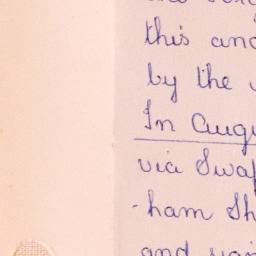 this and
by the
In Augu
via Swaf
-ham Sh
and